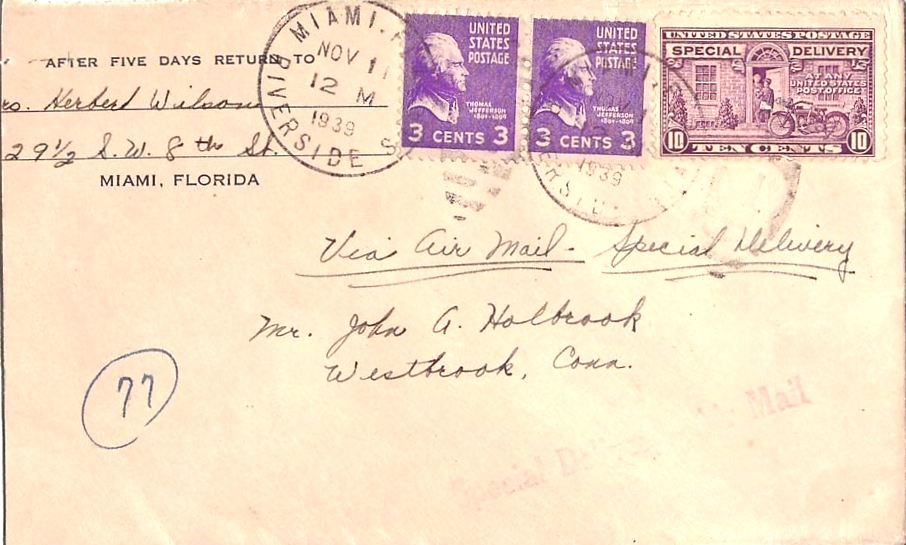 AFTER FIVE DAYS RETURN TO
rs. Herbert Wilson
29½ S.W. 8th St.
MIAMI, FLORIDA
MIAMI, F
NOV 11
12 M
1939
RIVERSIDE S
UNITED
STATES
POSTAGE
THOMAS
JEFFERSON
1801-1809
3 CENTS 3
UNITED
STATES
POSTAGE
THOMAS
JEFFERSON
1801-1809
3 CENTS 3
1939
UNITED STATES POSTAGE
SPECIAL DELIVERY
AT ANY
UNITED STATES
POST OFFICE
10 TEN CENTS 10
Via Air Mail - Special Delivery
Mr. John A. Holbrook
Westbrook, Conn.
77
Special Delivery Mail